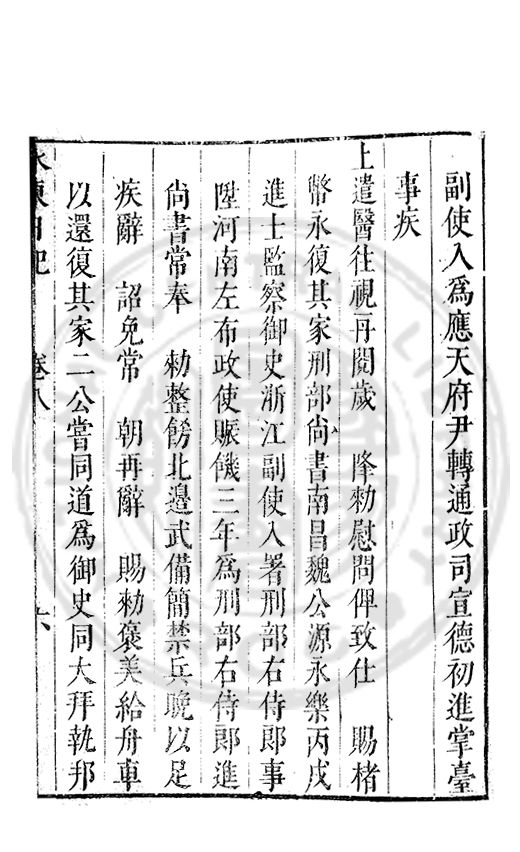 副使入爲應天府尹轉通政司宣德初進掌臺
事疾
上遣醫往視再閱歲　降勑慰問俾致仕　賜楮
幣永復其家刑部尚書南昌魏公源永樂丙戌
進士監察御史浙江副使入署刑部右侍郎事
陞河南左布政使賑饑三年爲刑部右侍郎進
尚書常奉　勑整飭北邊武備簡禁兵晚以足
疾辭　詔免常　朝再辭　賜勑褒美給舟車
以還復其家二公嘗同道爲御史同大拜執邦
水東日記　卷八　六